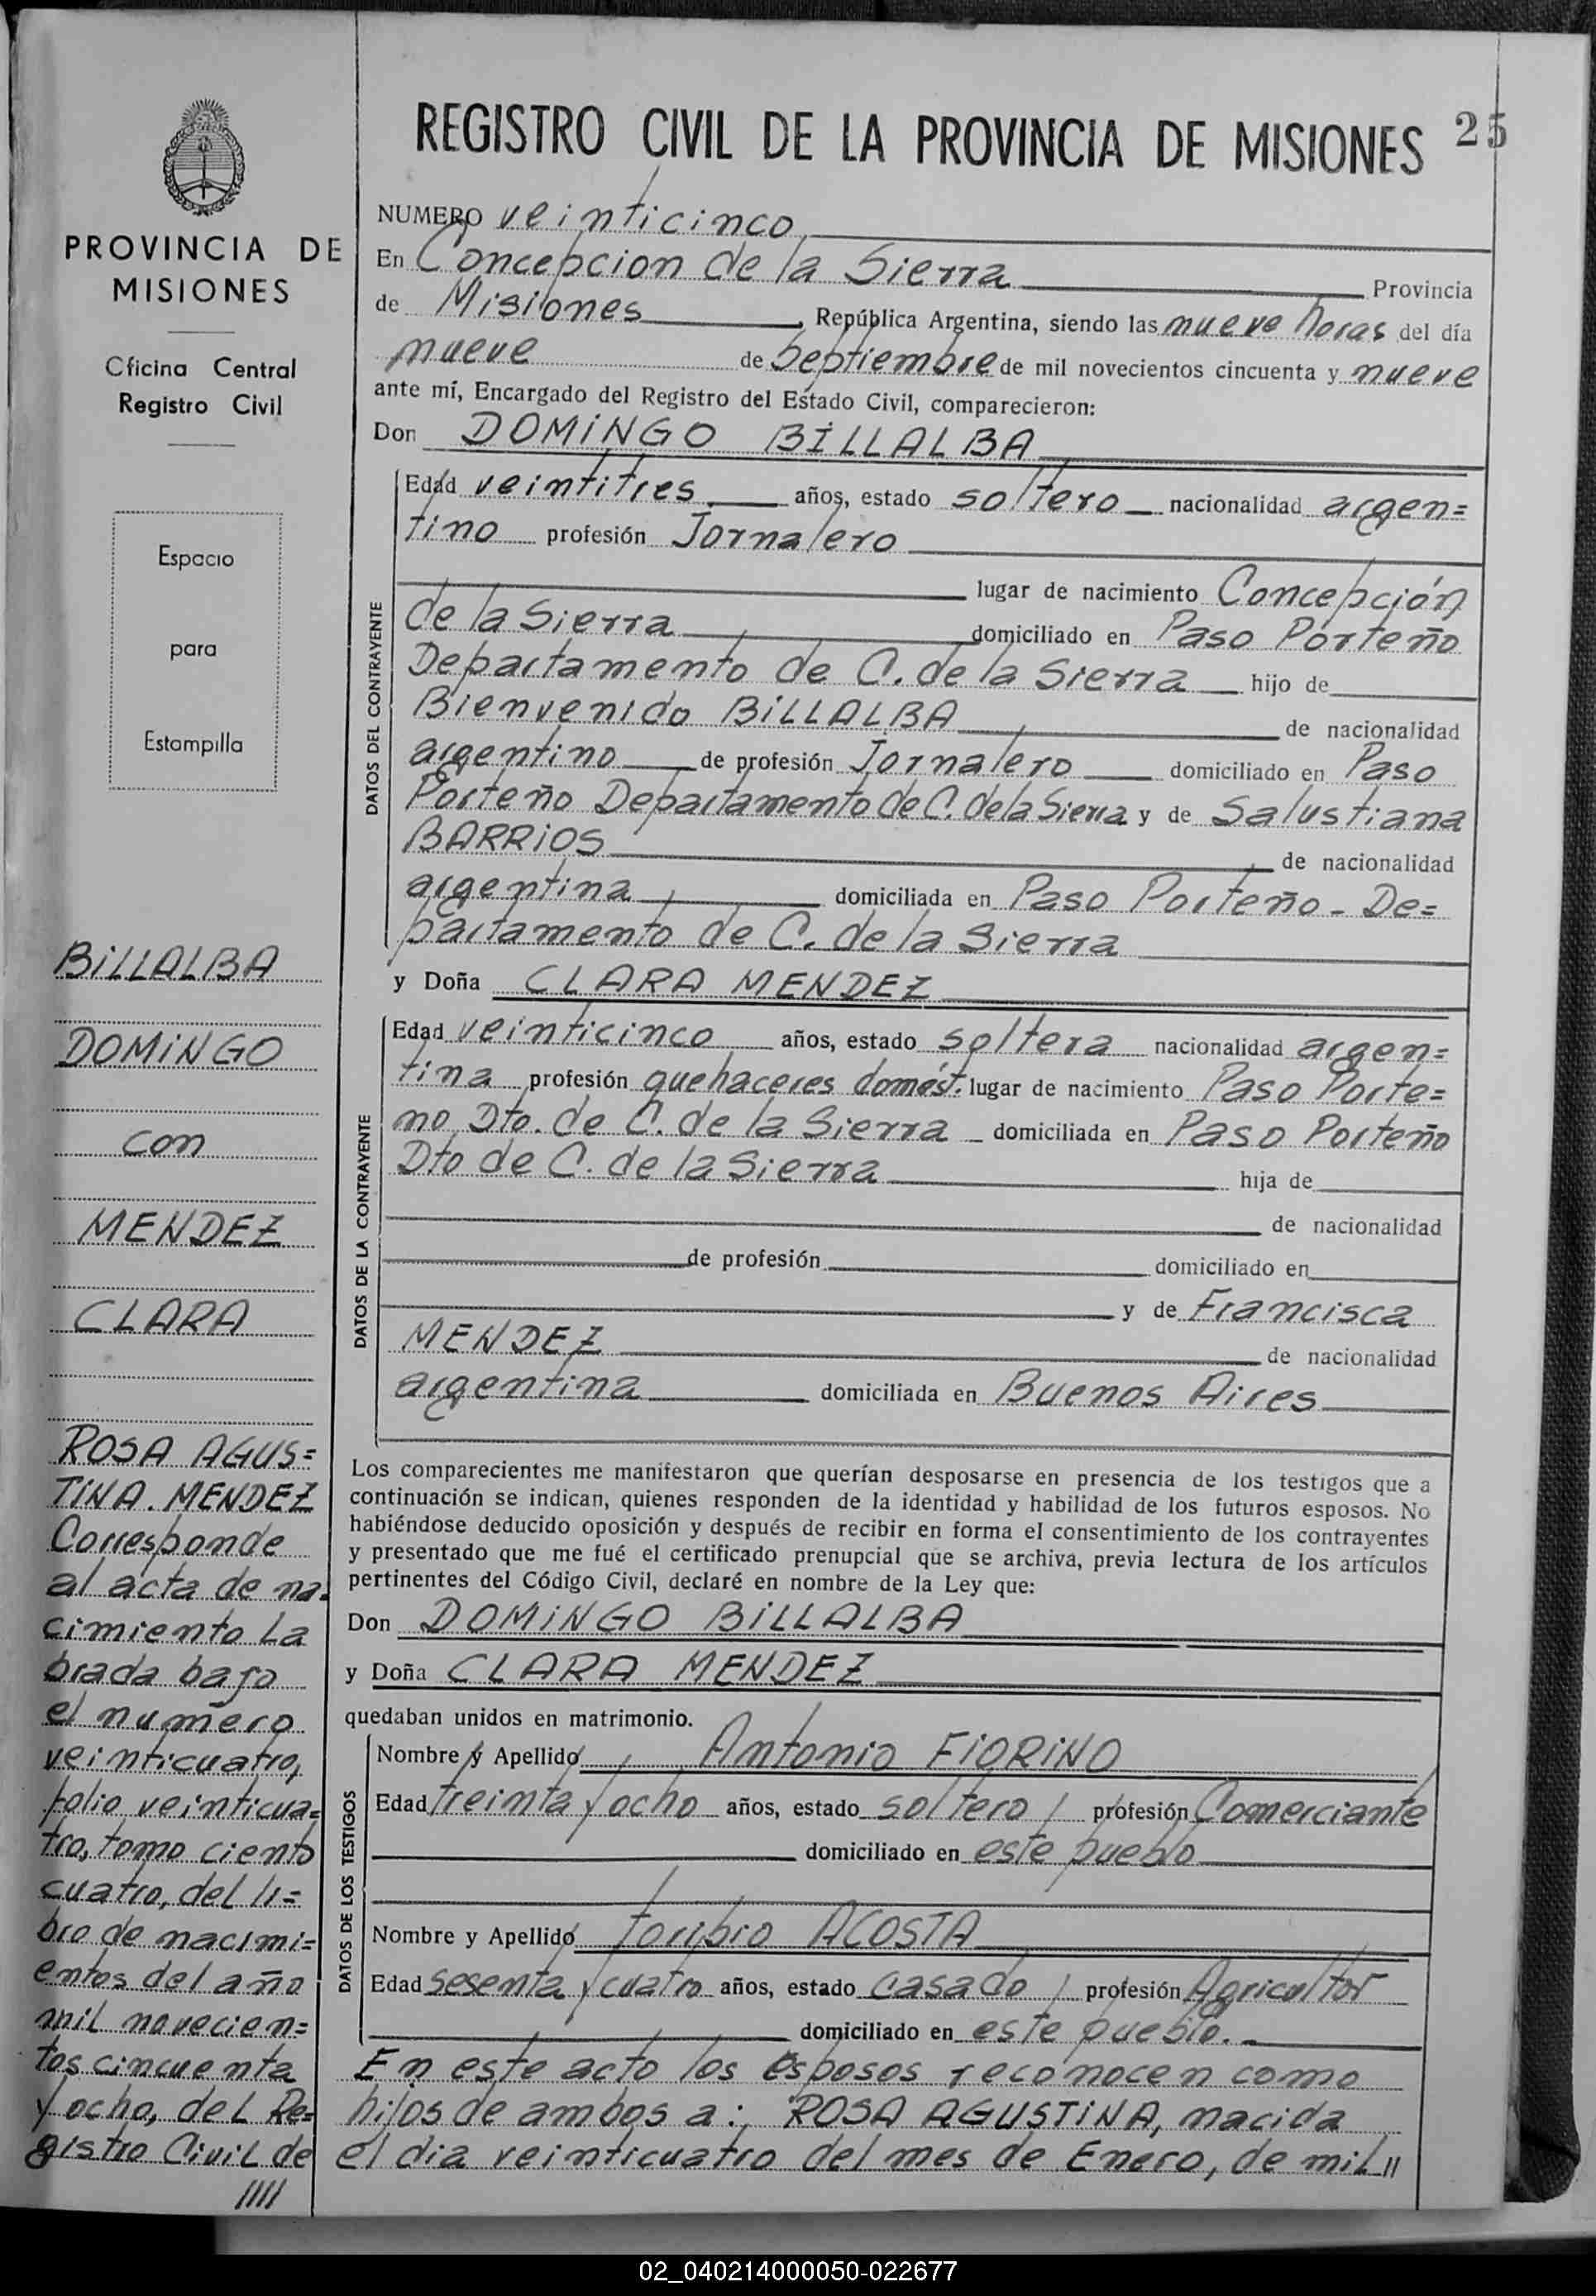 REGISTRO CIVIL DE LA PROVINCIA DE MISIONES 25
PROVINCIA DE
MISIONES
Oficina Central
Registro Civil
Espacio
para
Estampilla
BiLLALBA
DOMiNGO
con
MENDEZ
CLARA
ROSA AGUS=
TiNA. MENDEZ
Corresponde
al acta de na-
cimiento La
brada bajo
el numero
veinticuatro,
folio veinticua=
tro, tomo ciento
cuatro, del li=
bro de nacimi=
entos del año
mil novecien=
tos cincuenta
y ocho, deL Re=
gistro CiviL de
////
NUMERO veinticinco
En Concepcion de la Sierra Provincia
de Misiones, República Argentina, siendo las nueve horas del día
nueve de Septiembre de mil novecientos cincuenta y nueve
ante mí, Encargado del Registro del Estado Civil, comparecieron:
Don DOMiNGO BiLLALBA
DATOS DEL CONTRAYENTE
Edad veintitres años, estado soltero nacionalidad argen=
tino profesión Jornalero
lugar de nacimiento Concepción
de la Sierra domiciliado en Paso Porteño
Departamento de C. de la Sierra hijo de
Bienvenido BiLLALBA de nacionalidad
argentino de profesión Jornalero domiciliado en Paso
Porteño Departamento de C. de la Sierra y de Salustiana
BARRiOS de nacionalidad
argentina domiciliada en Paso Porteño - De=
partamento de C. de la Sierra
y Doña CLARA MENDEZ
DATOS DE LA CONTRAYENTE
Edad veinticinco años, estado soltera nacionalidad argen=
tina profesión quehaceres domést. lugar de nacimiento Paso Porte=
no Dto. de C. de la Sierra - domiciliada en Paso Porteño
Dto de C. de la Sierra hija de
de nacionalidad
de profesión domiciliado en
y de Francisca
MENDEZ de nacionalidad
argentina domiciliada en Buenos Aires
Los comparecientes me manifestaron que querían desposarse en presencia de los testigos que a
continuación se indican, quienes responden de la identidad y habilidad de los futuros esposos. No
habiéndose deducido oposición y después de recibir en forma el consentimiento de los contrayentes
y presentado que me fué el certificado prenupcial que se archiva, previa lectura de los artículos
pertinentes del Código Civil, declaré en nombre de la Ley que:
Don DOMiNGO BiLLALBA
y Doña CLARA MENDEZ
quedaban unidos en matrimonio.
DATOS DE LOS TESTIGOS
Nombre y Apellido Antonio FiORiNO
Edad treinta y ocho años, estado soltero profesión Comerciante
domiciliado en este pueblo
Nombre y Apellido Toribio ACOSTA
Edad sesenta y cuatro años, estado casado profesión Agricultor
domiciliado en este pueblo.
En este acto los esposos reconocen como
hijos de ambos a: ROSA AGUSTiNA, nacida
el dia veinticuatro del mes de Enero, de miL //
02_040214000050-022677